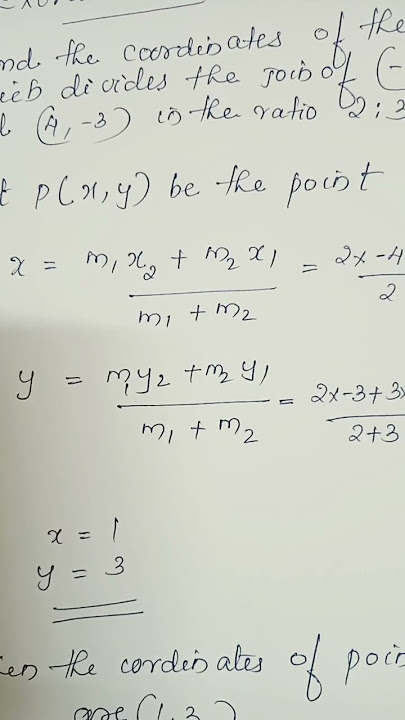 nd the coordinates of the
ich divides the join of (-
(4, -3) in the ratio 2:3
t P(x, y) be the point
x = m₁x₂ + m₂x₁ / m₁ + m₂ = 2x-4 / 2
y = m₁y₂ + m₂y₁ / m₁ + m₂ = 2x-3+3x / 2+3
x = 1
y = 3
en the cordinates of poin
are (1, 3)